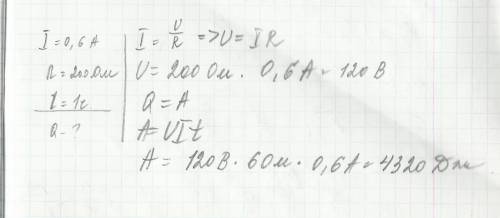 I = 0,6 А
R = 200 Ом
t = 1с
Q - ?
I = U/R => U = IR
U = 200 Ом · 0,6 А = 120 В
Q = A
A = UIt
A = 120 В · 60м · 0,6 А = 4320 Дж